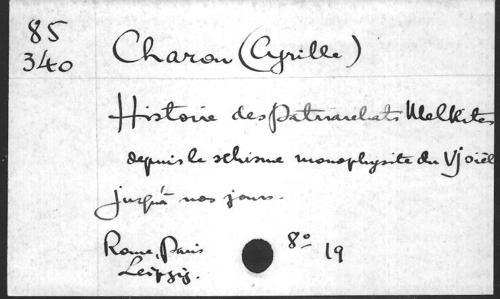 85
340
Charon (Cyrille)
Histoire des Patriarchats Melkites
depuis le schisme monophysite du VI
jusqu'à nos jours.
Rome, Paris 8º 19
Leipzig.